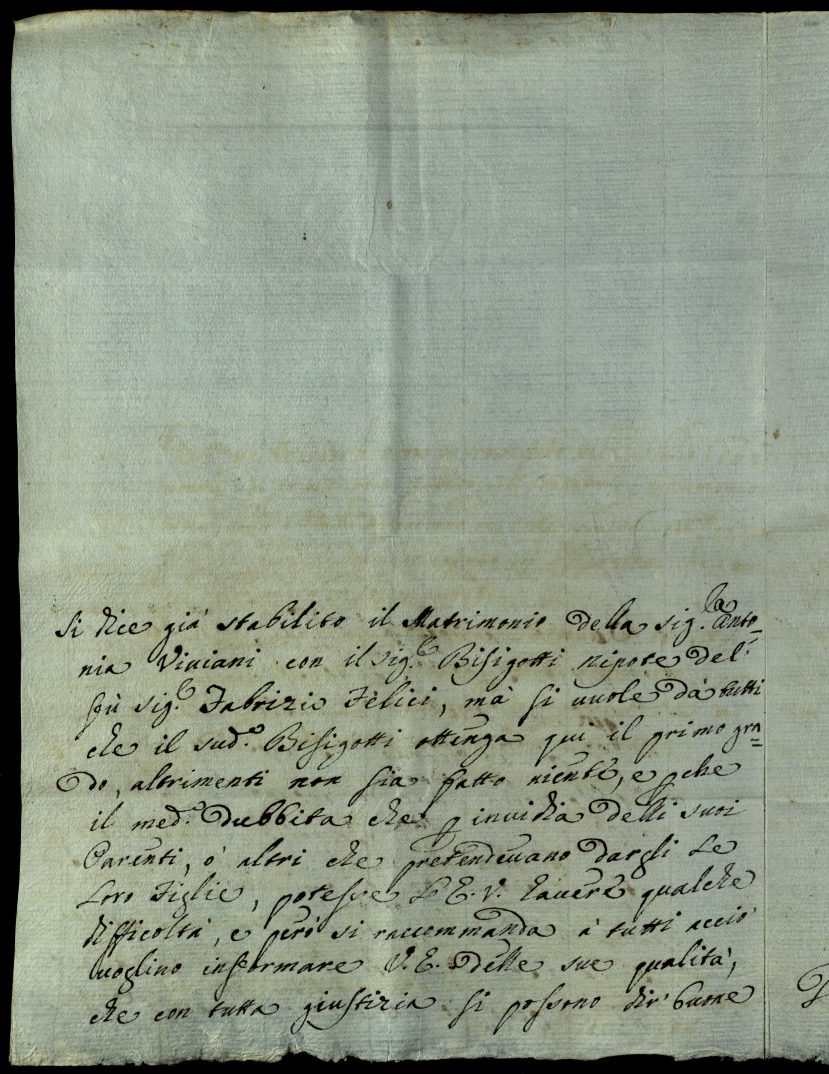 Si dice già stabilito il Matrimonio della Sig.ra Anto=
nia Viviani con il Sig.e Bisigotti nipote del
fù Sig.e Fabrizio Felici, mà si vuole da tutti
che il sud.o Bisigotti ottenga qui il primo gra=
do, altrimenti non sia fatto niente, e p che
il med.o dubbita che p invidia delli suoi
Parenti, ò altri che pretendevano dargli le
loro Figlie, potesse L'E. V. havere qualche
difficoltà, e però si raccommanda à tutti acciò
voglino informare V. E. delle sue qualità,
che con tutta giustizia si possono dir' buone